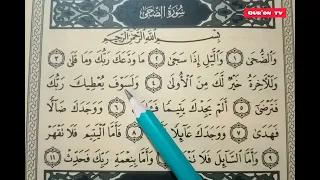 QUR'ON TV
سُورَةُ الضُّحَى
بِسْمِ اللَّهِ الرَّحْمَٰنِ الرَّحِيمِ
وَالضُّحَى ١ وَالَّيْلِ إِذَا سَجَى ٢ مَا وَدَّعَكَ رَبُّكَ وَمَا قَلَى ٣
وَلَلْآخِرَةُ خَيْرٌ لَكَ مِنَ الْأُولَى ٤ وَلَسَوْفَ يُعْطِيكَ رَبُّكَ
فَتَرْضَى ٥ أَلَمْ يَجِدْكَ يَتِيمًا فَـَٔاوَى ٦ وَوَجَدَكَ ضَالًّا
فَهَدَى ٧ وَوَجَدَكَ عَائِلًا ٨ فَأَمَّا الْيَتِيمَ فَلَا تَقْهَرْ
٩ وَأَمَّا السَّائِلَ فَلَا وَأَمَّا بِنِعْمَةِ رَبِّكَ فَحَدِّثْ ١١